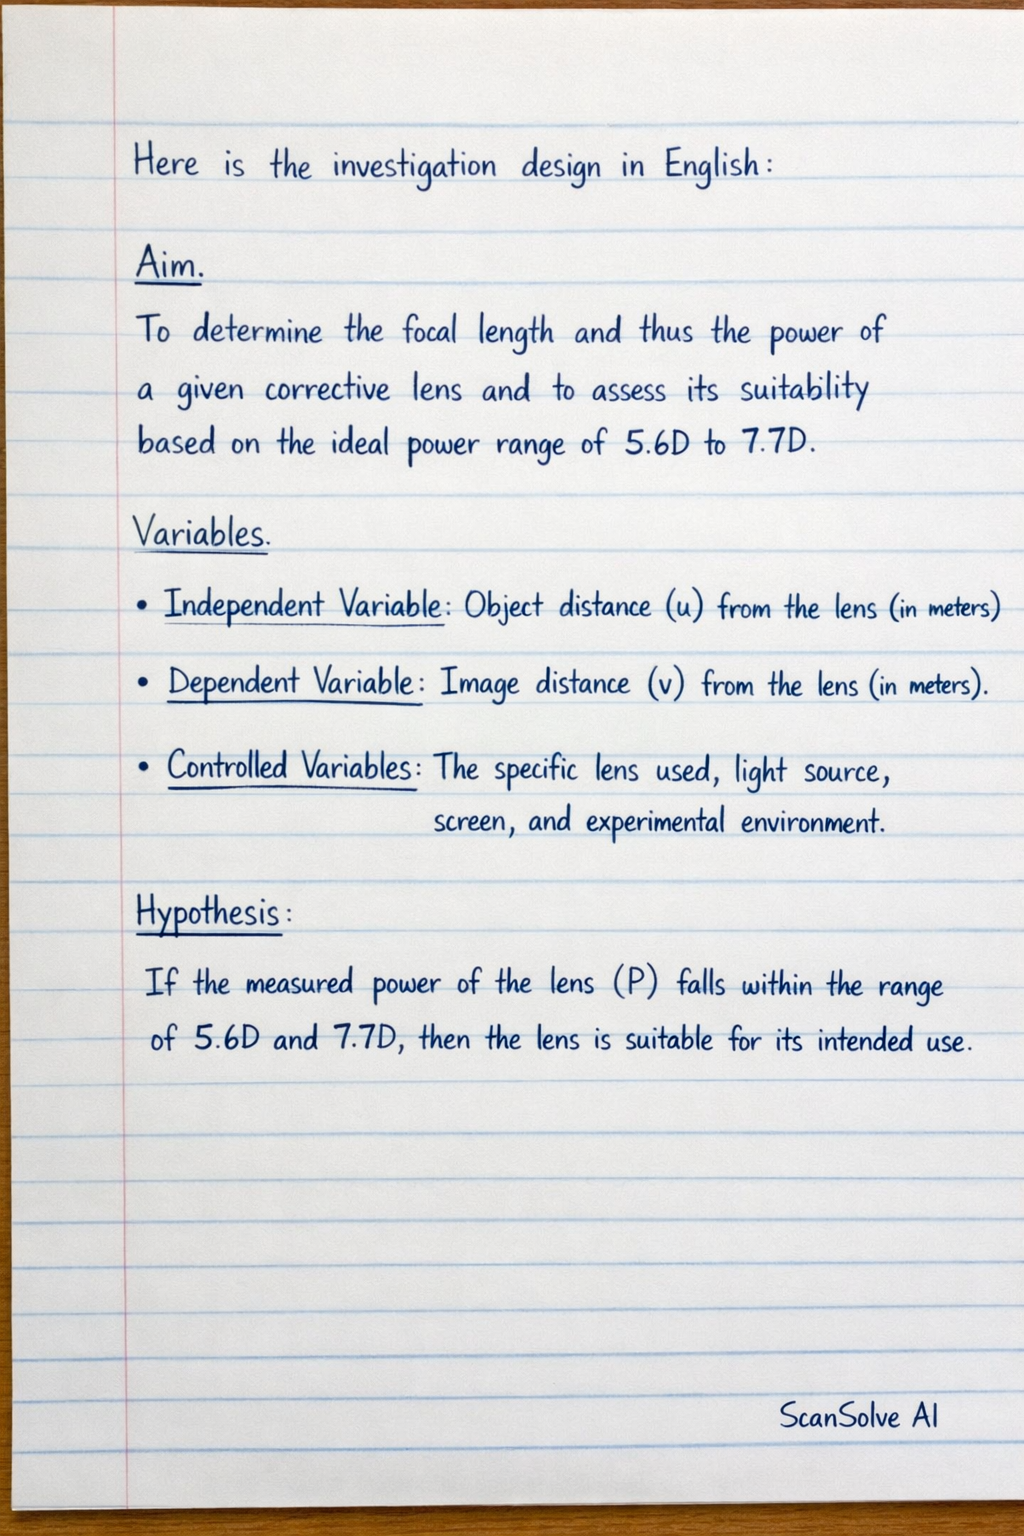 Here is the investigation design in English:
Aim.
To determine the focal length and thus the power of
a given corrective lens and to assess its suitability
based on the ideal power range of 5.6D to 7.7D.
Variables.
• Independent Variable: Object distance (u) from the lens (in meters)
• Dependent Variable: Image distance (v) from the lens (in meters).
• Controlled Variables: The specific lens used, light source,
screen, and experimental environment.
Hypothesis:
If the measured power of the lens (P) falls within the range
of 5.6D and 7.7D, then the lens is suitable for its intended use.
ScanSolve AI